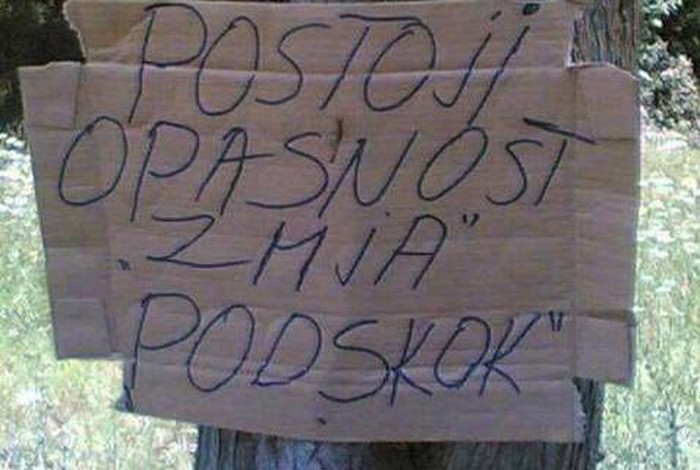 POSTOJI
OPASNOST
„ZMJA"
PODSKOK"